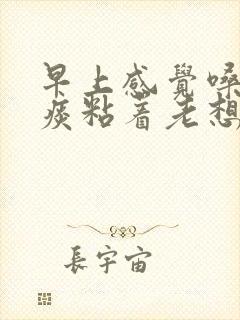 早上感覺嗓
痰粘着老想
長宇宙